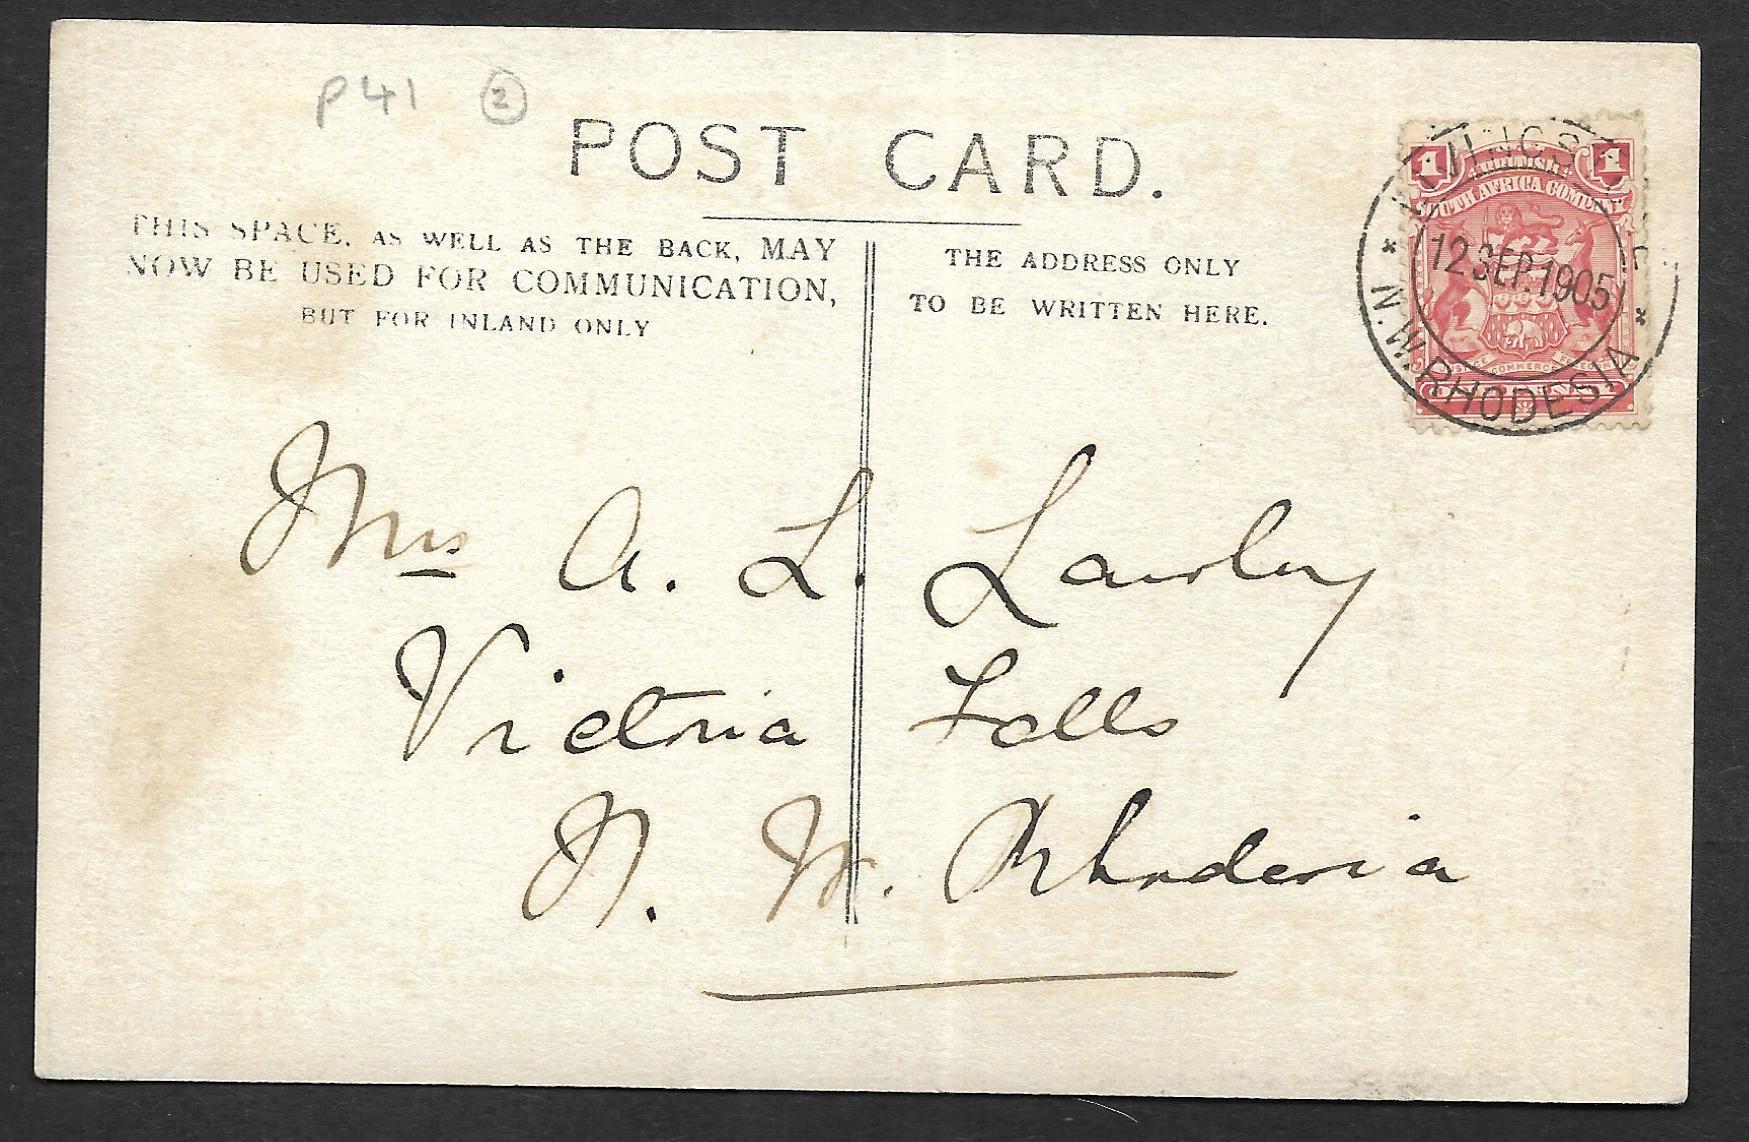 P41 2
POST CARD.
THIS SPACE, AS WELL AS THE BACK, MAY
NOW BE USED FOR COMMUNICATION,
BUT FOR INLAND ONLY
THE ADDRESS ONLY
TO BE WRITTEN HERE.
1 1
SOUTH AFRICA COMPANY
12 SEP. 1905
* N.W. RHODESIA *
Mrs A. L. Lawley
Victoria Falls
N. W. Rhodesia